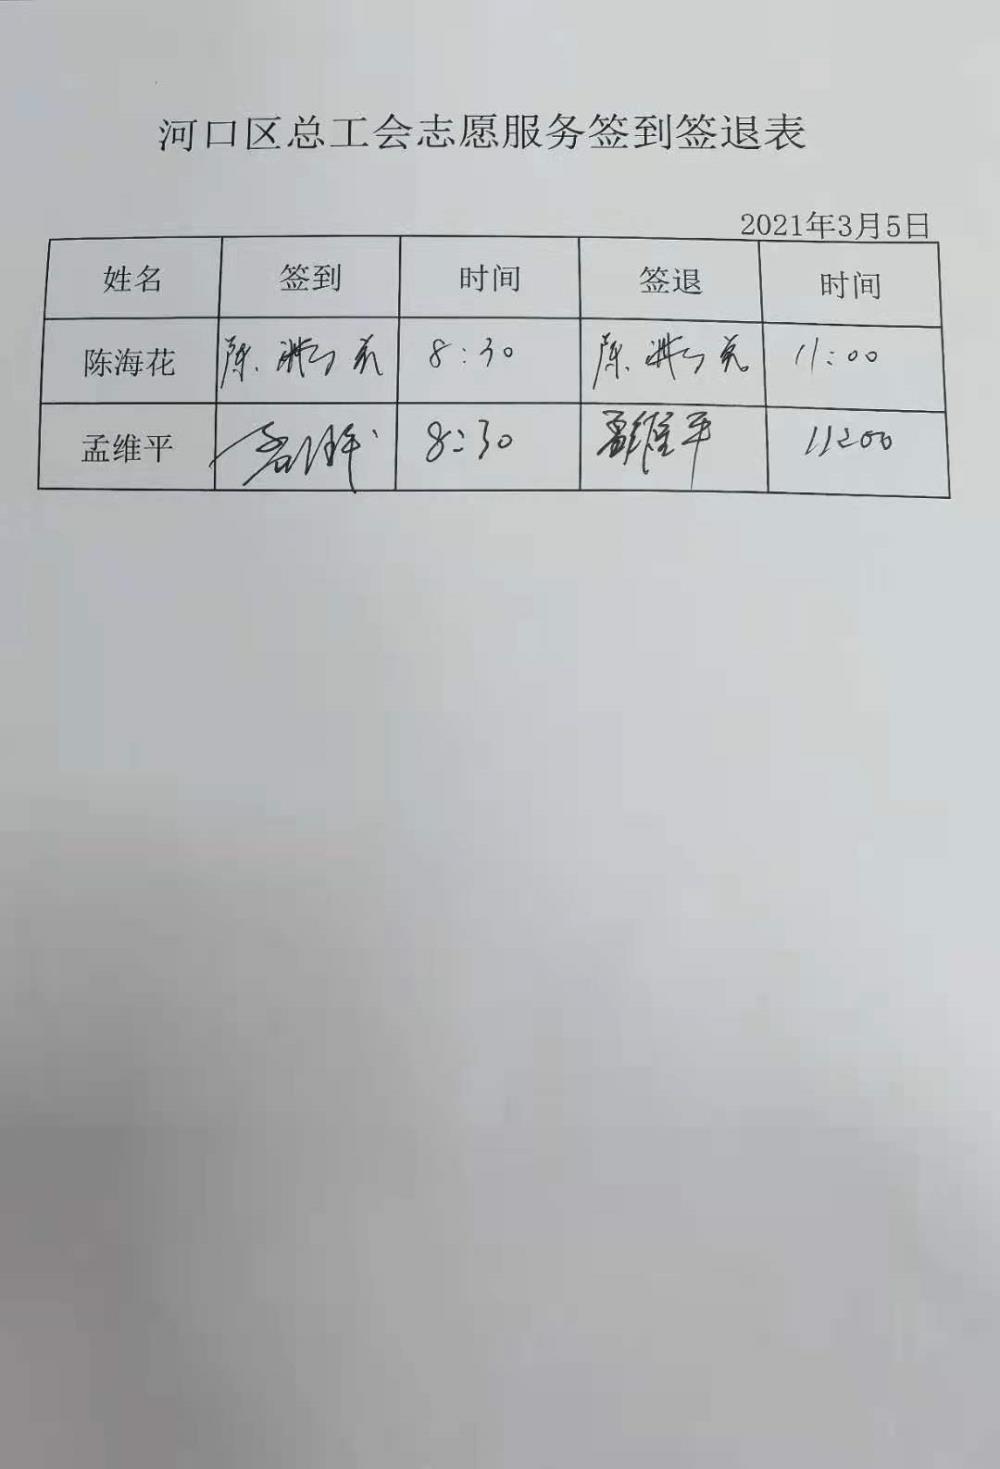 河口区总工会志愿服务签到签退表
2021年3月5日
姓名 签到 时间 签退 时间
陈海花 陈海花 8:30 陈海花 11:00
孟维平 孟维平 8:30 孟维平 11:00